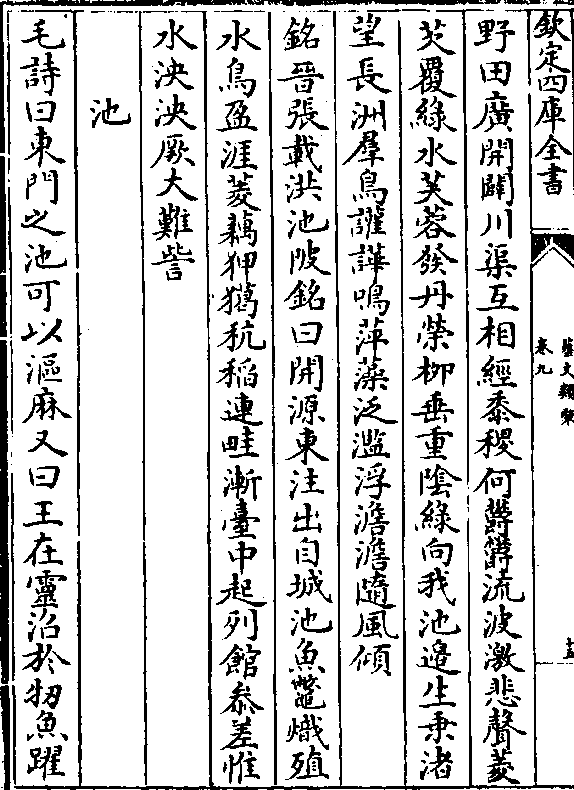 欽定四庫全書
藝文類聚
卷九
野田廣開闢川渠互相經黍稷何欝欝流波激悲聲菱
芡覆綠水芙蓉發丹榮柳垂重陰綠向我池邊生乗渚
望長洲羣鳥讙譁鳴萍藻泛濫浮澹澹隨風傾
銘晉張載洪池陂銘曰開源東注出自城池魚鼈熾殖
水鳥盈涯菱藕狎獵秔稻連畦漸臺中起列館叅差惟
水泱泱厥大難訾
池
毛詩曰東門之池可以漚麻又曰王在靈沼於牣魚躍